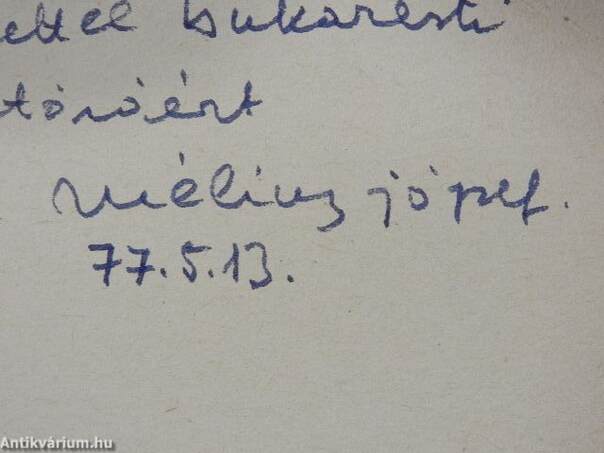 ettel bukaresti
tóróért
Méliusz józsef.
77.5.13.
Antikvárium.hu